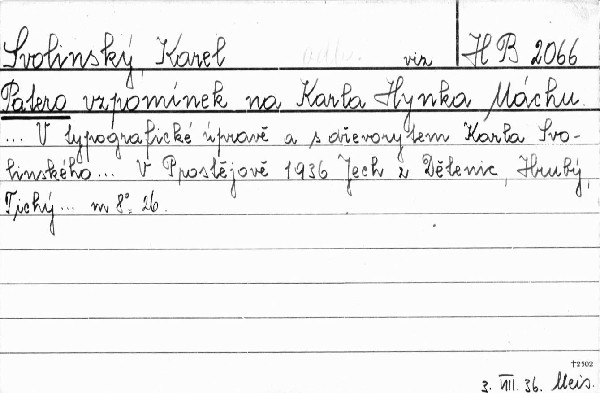 Svolinský Karel viz HB 2066
Patero vzpomínek na Karla Hynka Máchu.
... V typografické úpravě a s dřevorytem Karla Svo-
linského... V Ppostějově 1936 Jech z Dětenic, Hrubý,
Tichý... m 8° 26.
†2502
3. VIII. 36. Meis.